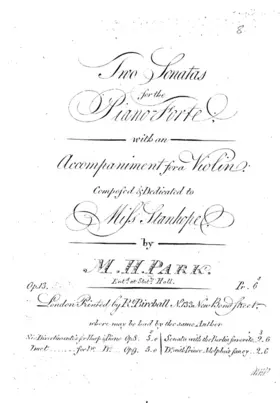 8
Two Sonatas
for the
Piano Forte.
with an
Accompaniment for a Violin.
Composed & Dedicated to
Miss Stanhope
by
M. H. PARK.
Ent.d at Sta.s Hall.
Op. 13. Pr. 6
London Printed by R.t Birchall. No. 133. New Bond Street,
where may be had by the same Author
Six Divertimentos for Harp & Piano Op. 8. 5.0 Sonata with the
Duet for D.o Op. 9. 5.0 D.o with Prince Adolphus's fancy. 2.6